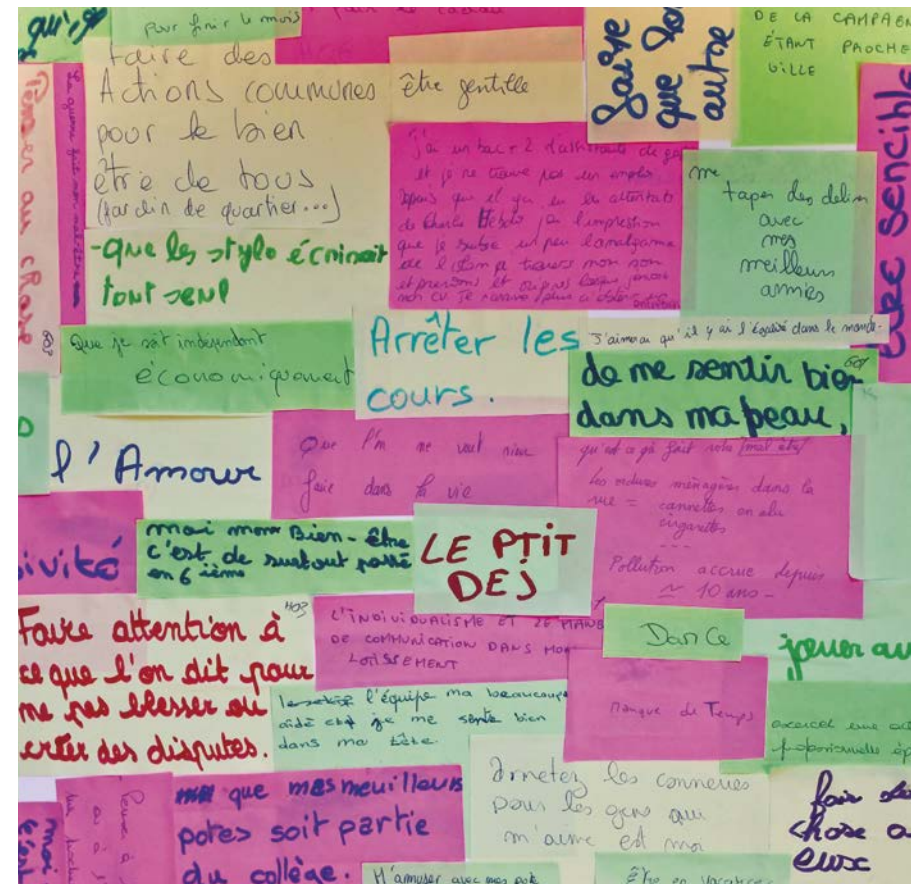 qu'ils
pour finir le mois
faire des
Actions communes
pour le bien
être de tous
(jardin de quartier...)
être gentille
Faire
que
autre
DE LA CAMPAGN
ÉTANT PROCHE
VILLE
être sencible
Penser au
La guerre fait mon mal-être
j'ai un bac + 2 d'assistante de
et je ne trouve pas un emploi
Depuis qu'il y a eu les attentats
de Charlie Hebdo j'ai l'impression
que je subis un peu l'amalgame
de l'islam a travers mon nom
et prénom
mon CV je
me
taper des delires
avec
mes
meilleurs
amies
-que les stylo écrirait
tout seul
Que je soit independant
économiquement
Arrêter les
cours.
J'aimerai qu'il y ai l'égalité dans le monde.
de me sentir bien
dans ma peau,
l'Amour
Que l'm ne veut rien
faire dans la vie
qu'est ce qui fait votre mal être
Les ordures ménagères dans la
rue = cannettes
cigarettes
---
Pollution accrue depuis
≃ 10 ans -
ivité
moi mon Bien-être
c'est de surtout passé
en 6 ième
LE PTIT
DEJ
Faire attention à
ce que l'on dit pour
ne pas blesser ou
créer des disputes.
403
L'INDIVIDUALISME ET LE MANQUE
DE COMMUNICATION DANS MON
LOTISSEMENT
Dance
jouer au
l'équipe ma beaucoup
aidé je me sente bien
dans ma tête.
Manque de Temps
une
que mes meuilleurs
potes soit partie
du collège.
Arretez les conneries
pour les gens qui
m'aime est moi
fair
chose
eux
M'amuser avec mes pote
Être en vacances
moi